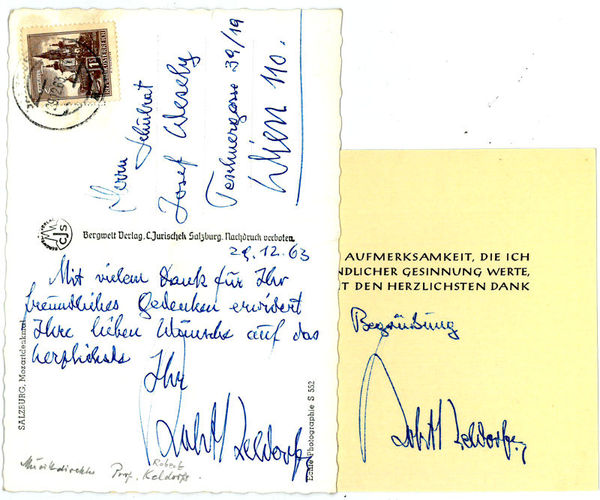 Herrn Schulrat
Josef Wesely
Teschnergasse 39/19
Wien 110.
Bergwelt Verlag, C. Jurischek Salzburg. Nachdruck verboten.
CJS
29.12.63
Mit vielem Dank für Ihr
freundliches Gedenken erwidert
Ihre lieben Wünsche auf das
herzlichste
Ihr
Keldorfer
SALZBURG, Mozartdenkmal
Photographie S 552
Musikdirektor Prof. Robert Keldorfer
AUFMERKSAMKEIT, DIE ICH
NDLICHER GESINNUNG WERTE,
T DEN HERZLICHSTEN DANK
Begrüßung
Keldorfer